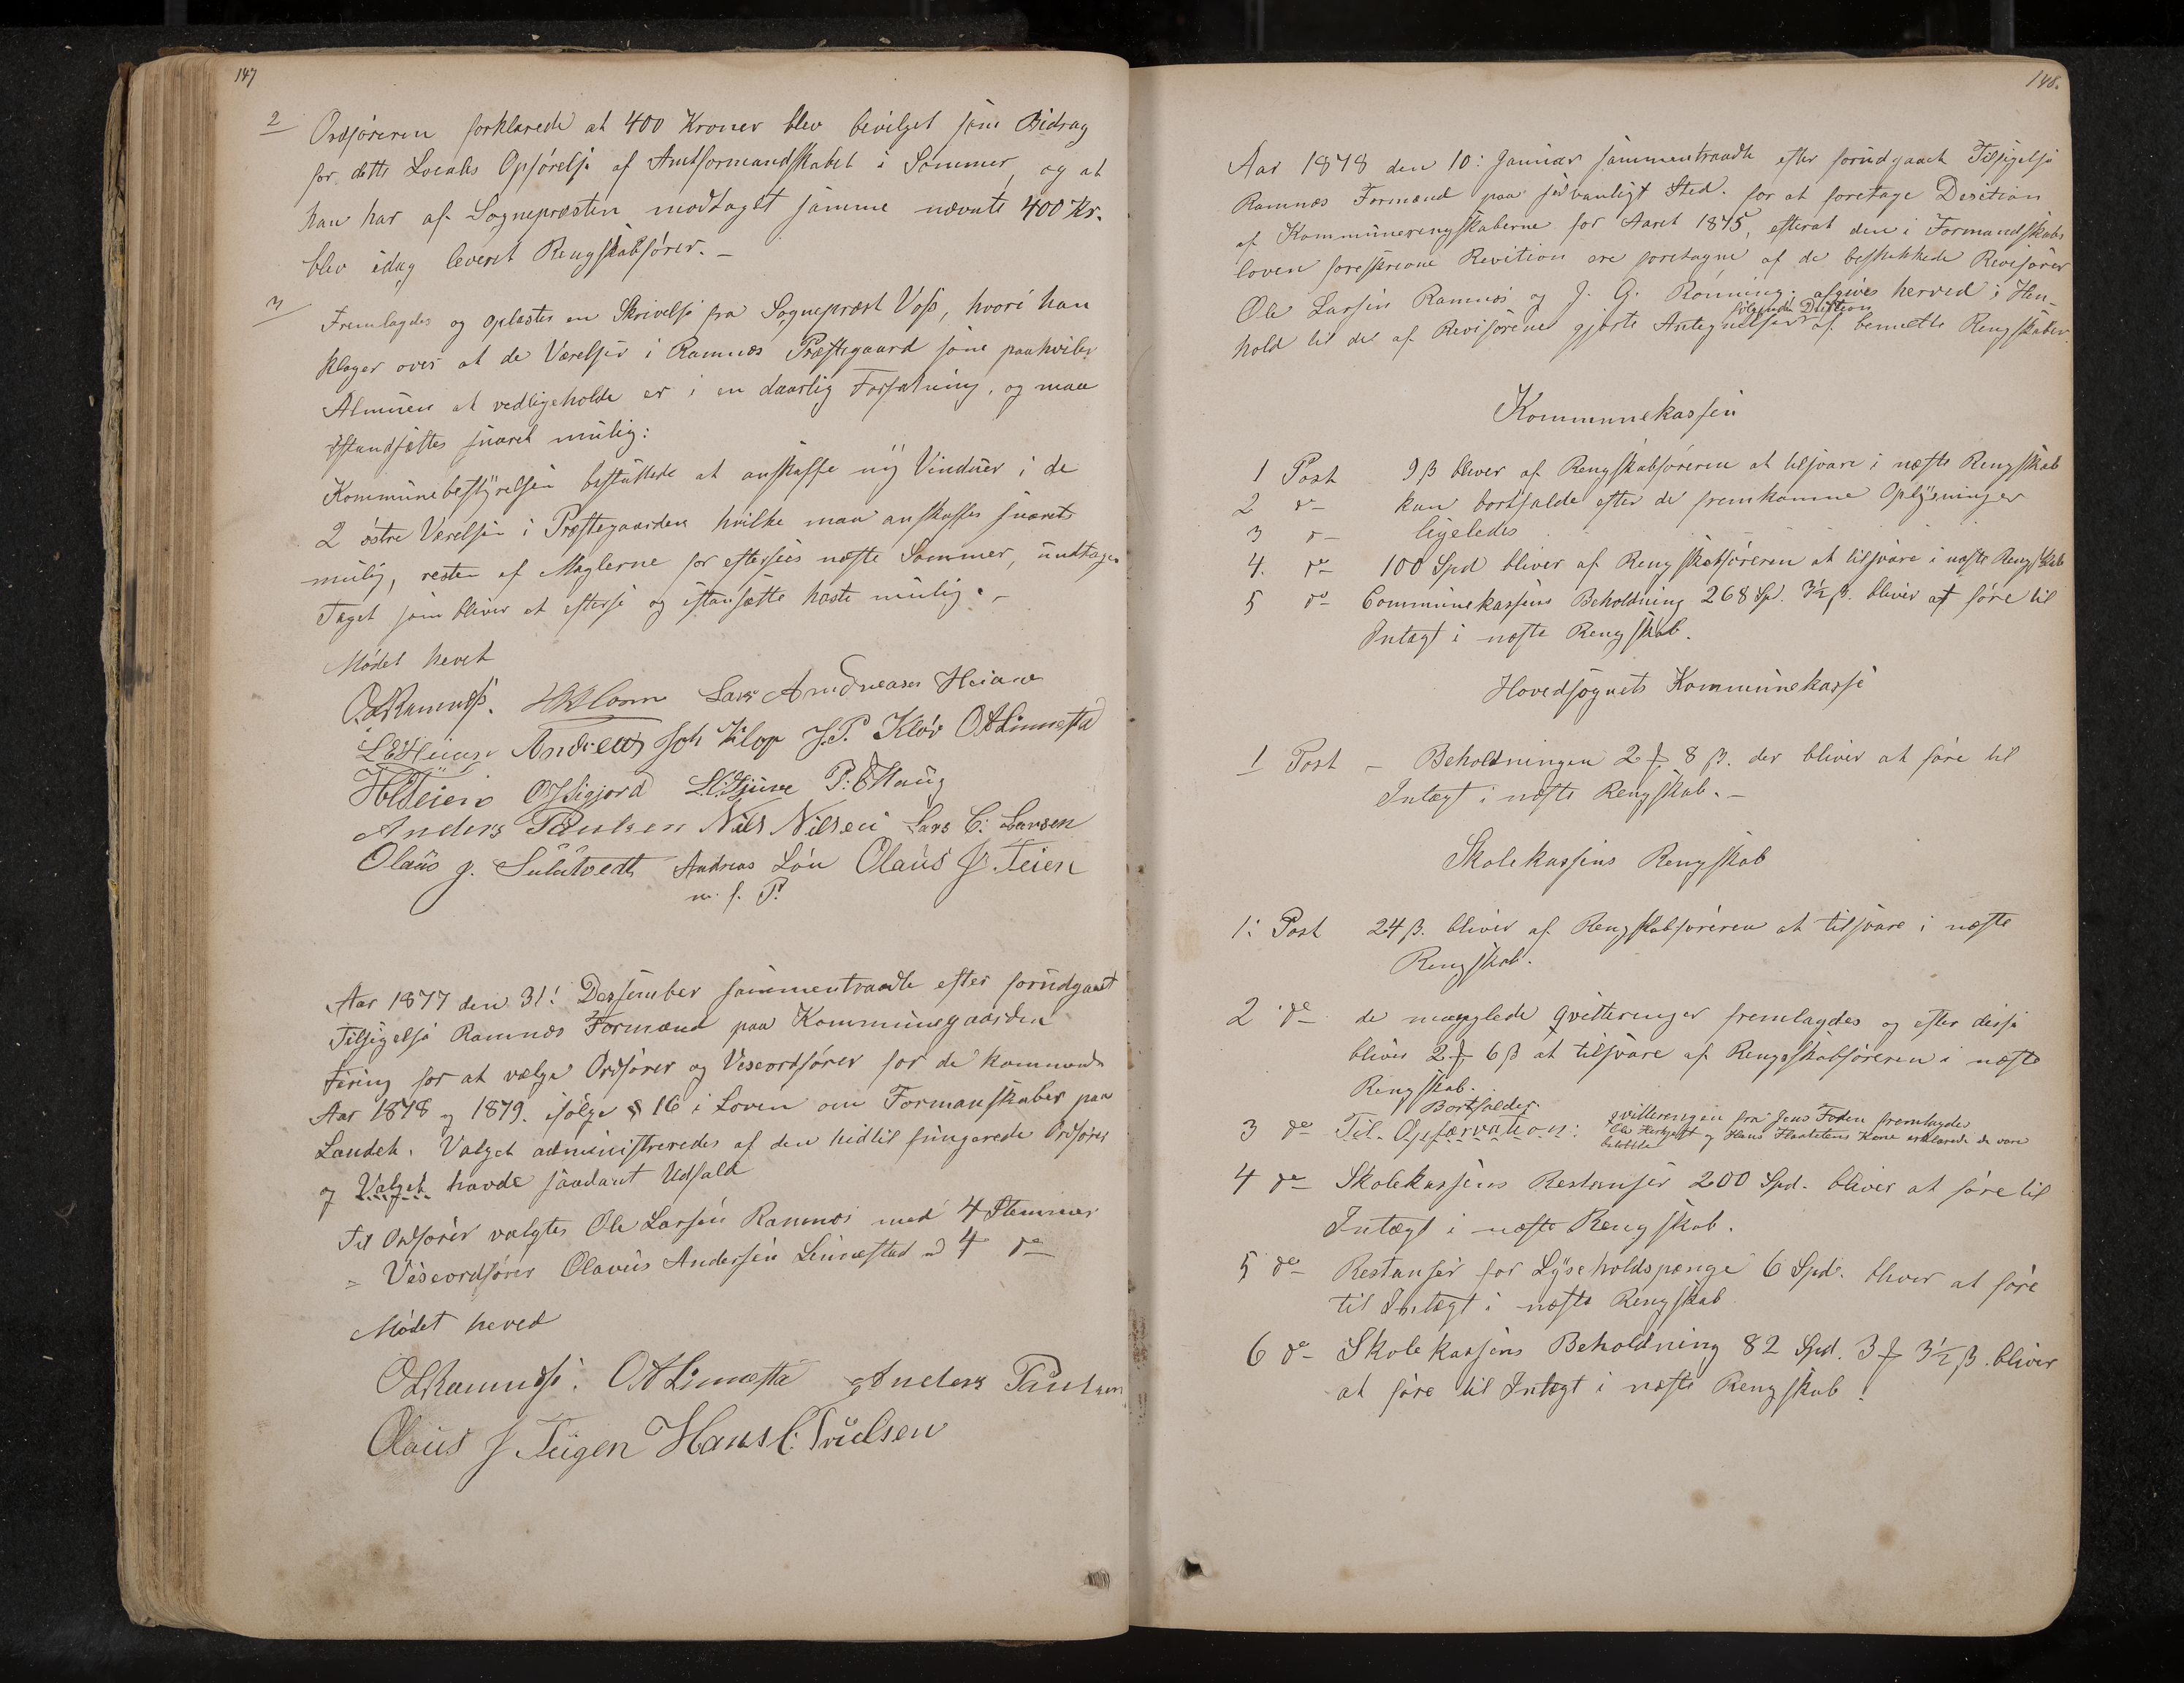 147
2 Ordføreren forklarede at 400 Kroner blev bevilget som Bidrag
for dette Locales Opførelse af Amtformandskabet i Sommer, og at
han har af Sognepræsten modtaget samme nævnte 400 Kr.
blev idag leveret Rengskabsfører. –
3 Fremlagdes og oplæstes en Skrivelse fra Sognepræst Voss, hvori han
klager over at de Værelser i Ramnæs Præstegaard som paahviler
Almuen at vedligeholde er i en daarlig Forfatning, og maa
istandsættes snarest mulig:
Kommunebestyrelsen besluttede at anskaffe ny Vinduer i de
2 østre Værelser i Præstegaarden hvilke maa anskaffes snarest
mulig, resten af Maglerne for eftersees næste Sommer, undtagen
Taget som bliver at efterse og istansætte haste mulig. –
Mødet hevet
O.L.Ramnæs. Lars Andreasen Heiane
Andreas Joh Klop J.P. Kløv OALinnestad
P. E Haug
Anders Paulsen Nils Nilsen Lars C. Larsen
Olaus J. Sulutvedt Andreas Løn Olaus J. Teien
m. f. P.
Aar 1877 den 31! Dessember sammentraadte efter forudgaaet
Tilsigelse Ramnæs Formænd paa Kommunegaarden
Føring for at vælge Ordfører og Veseordfører for de kommende
Aar 1878 og 1879. ifølge § 16 i Loven om Formanskaber paa
Landet. Valget administreredes af den hidtil fungerede Ordfører
og Valget havde saadant Udfald
Til Ordfører valgtes Ole Larsen Ramnæs med 4 Stemmer
" Veseordfører Olavus Andersen Linnestad " 4 do
Mødet heved
OLRamnæs. OALinnestad Anders Paulsen
Olaus J Teigen Hans C. Truelsen
148.
Aar 1878 den 10: Januar sammentraadte efter forudgaaet Tilsigelse
Ramnæs Formænd paa sedvanligt Sted. for at foretage Desition
af Kommunerengskaberne for Aaret 1875, efterat den i Formandskabs
loven foreskrevne Revition ere foretagne af de beskikkede Revisører
Ole Larsen Ramnæs og J. G. Rønning. afgives herved i Hen-
følgende Desition
hold til det af Revisørene gjorte Antegnelser af bemeldte Rengskaber.
Kommunekassen
1 Post 9 β bliver af Rengskabsføreren at tilsvare i næste Rengskab
2 do kan bortfalde efter de fremkomne Oplysninger
3 do ligeledes
4. do 100 Spd bliver af Rengskabsføreren at tilsvare i næste Rengskab
5 do Communekassens Beholdning 268 Sp. 3½ β. bliver at føre til
Intægt i næste Rengskab.
Hovedsognets Kommunekasse
1 Post – Beholdningen 2 ƒ 8 β. der bliver at føre til
Intægt i næste Rengskab. –
Skolekassens Rengskab
1: Post 24 β. bliver af Rengskabsføreren at tilsvare i næste
Rengskab.
2 do de manglede qvitteringer fremlagdes og efter disse
bliver 2 ƒ 6 β at tilsvare af Rengsskabsføreren i næste
Rengskab.
Bortfalder.
3 do Til Opservation: qvitteringen fra Jens Foden fremlagdes
og Hans Kone erklærede de vare
betalte
4 do Skolekassens Restanser 200 Spd. bliver at føre til
Intægt i næste Rengskab.
5 do Restanser for Lyseholdspenge 6 Spd. bliver at føre
til Intægt i næste Rengskab
6 do Skolekassens Beholdning 82 Spd. 3 ƒ 3½ β. bliver
at føre til Intægt i næste Rengskab!